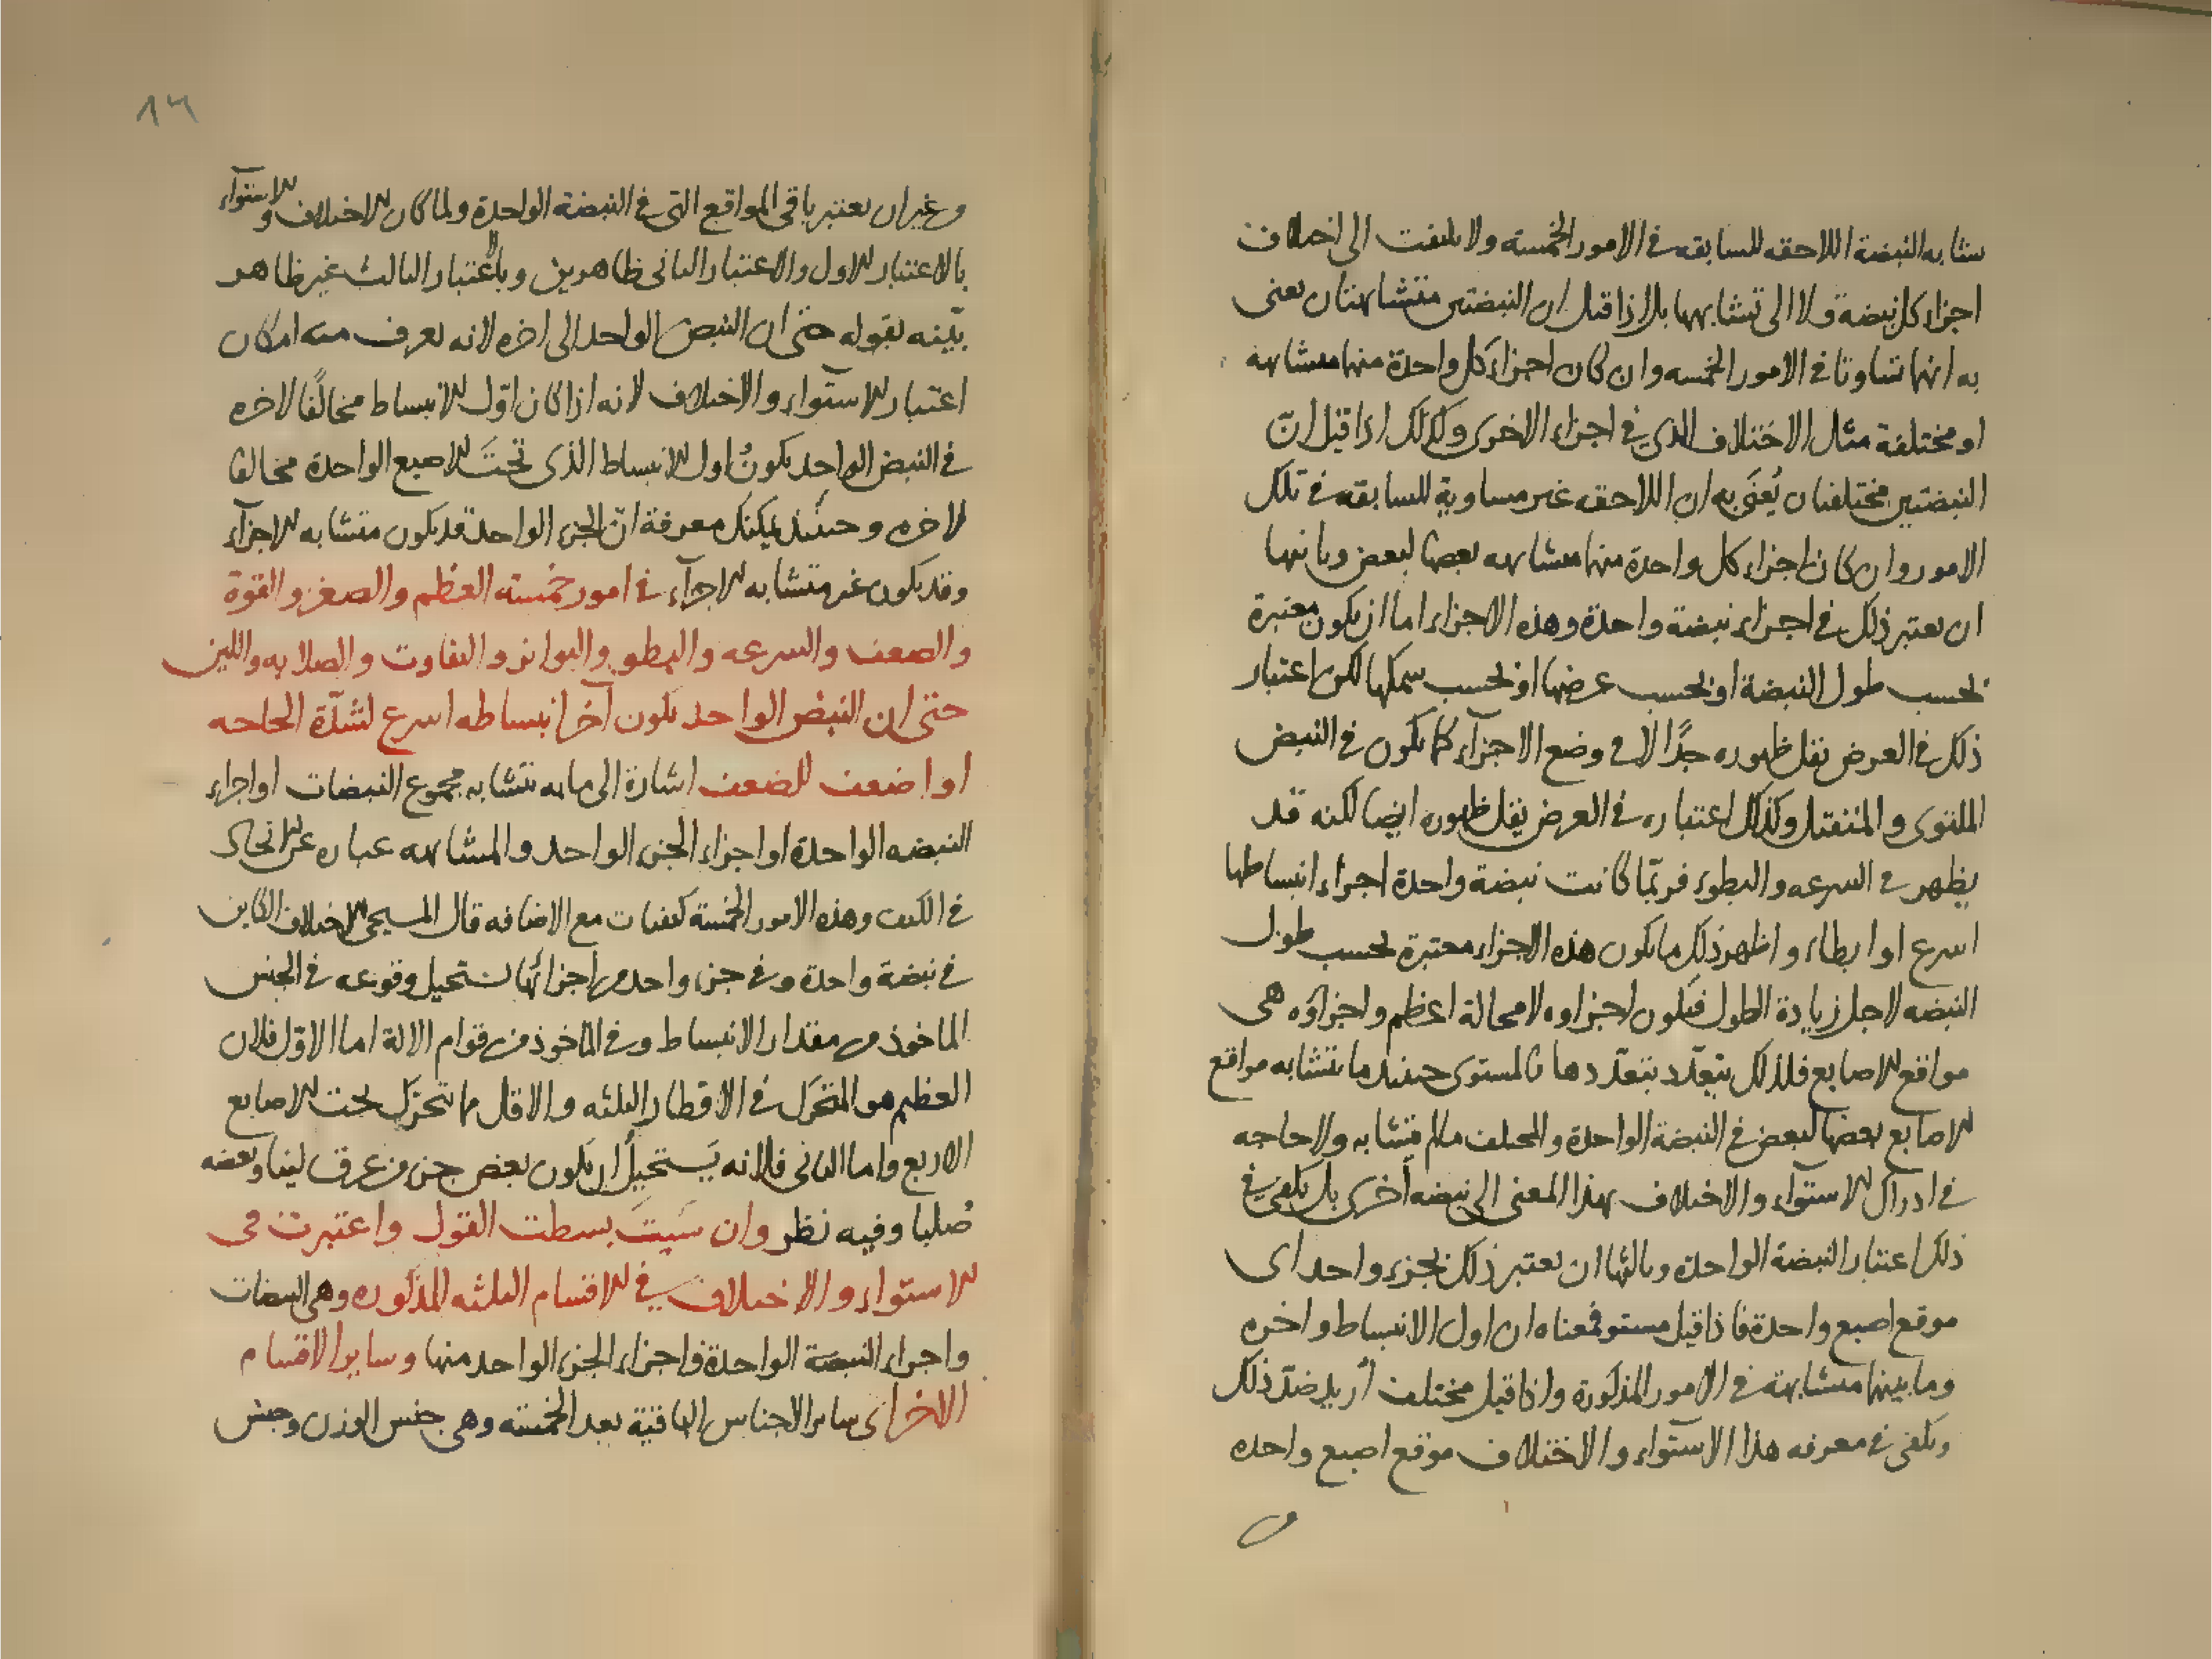 تشابه النبضة اللاحقه للسابقه فى الامور الخمسة ولا يلتفت الى اختلاف
اجزاء كل نبضة ولا الى تشابهها بل اذا قيل ان النبضتين متشابهتان يعنى
به انهما تساوتا فى الامور الخمسه وان كان اجزاء كل واحدة منهما متشابهة
او مختلفة مثل الاختلاف الذى فى اجزاء الاخرى وكذلك اذا قيل انّ
النبضتين مختلفتان يُعنَى به ان اللاحقه غير مساوية للسابقه فى تلك
الامور وان كان اجزاء كل واحدة منهما متشابهه بعضها لبعض وثانيها
ان يعتبر ذلك فى اجزاء نبضة واحدة وهذه الاجزاء اما ان يكون معتبرة
بحسب طول النبضة او بحسب عرضها او بحسب سمكها لكن اعتبار
ذلك فى العرض يقل ظهوره جدًا الا فى وضع الاجزآء كما يكون فى النبض
الملتوى والمنفتل وكذلك اعتباره فى العرض يقل ظهوره ايضا لكنه قد
يظهر فى السرعه والبطوء فربّما كانت نبضة واحدة اجزاء انبساطها
اسرع او ابطاء واظهر ذلك ما يكون هذه الاجزاء معتبرة بحسب طول
النبضه لاجل زيادة الطول فيكون اجزاوه لا محالة اعظم واجزاؤه هى
مواقع الاصابع فلذلك يتعدّد بتعدّدها فالمستوى حينئذ ما يتشابه مواقع
الاصابع بعضها لبعض فى النبضة الواحدة والمختلف ما لم يتشابه ولا حاجه
فى ادراك الاستوآء والاختلاف بهذا المعنى الى نبضه أخرى بل يكفى فى
ذلك اعتبار النبضة الواحدة وثالثها ان يعتبر ذلك بجزء واحد اى
موقع اصبع واحدة فاذا قيل مستو فمعناه ان اول الانبساط واخره
وما بينهما متشابهة فى الامور المذكورة واذا قيل مختلف أريد ضدّ ذلك
ويكفى فى معرفه هذا الاستوآء والاختلاف موقع اصبع واحده
١٦
وغير ان يعتبر باقى المواقع التى فى النبضة الواحدة ولما كان الاختلاف والاستوآء
بالاعتبار الاول والاعتبار الثانى ظاهرين وبالاعتبار الثالث غير ظاهر
بيّنه بقوله حتى ان النبض الواحد الى اخره لانه يعرف منه امكان
اعتبار الاستوآء والاختلاف لانه اذا كان اوّل الانبساط مخالفًا لاخره
فى النبض الواحد يكونُ اول الانبساط الذى تحتَ الاصبع الواحدة مخالفا
لاخره وحينئذ يمكنك معرفة انّ الجزء الواحد قد يكون متشابه الاجزآء
وقد يكون غير متشابه الاجزآء فى امور خمسته العظم والصغر والقوة
والضعف والسرعه والبطوء والتواتر والتفاوت والصلابه واللين
حتى ان النبض الواحد يكون آخر انبساطه اسرع لشدّة الحاجه
او اضعف للضعف اشارة الى ما به يتشابه مجموع النبضات او اجزاء
النبضه الواحدة او اجزاء الجزء الواحد والمشابهه عباره عن اتحاد
فى الكيف وهذه الامور الخمسة كيفيات مع الاضافه قال المسيحى الاختلاف الكاين
فى نبضة واحدة وفى جزء واحد من اجزائها يستحيل وقوعه فى الجنس
الماخوذ من مقدار الانبساط وفى الماخوذ من قوام الالة اما الاوّل فلان
العظيم هو المتحرك فى الاقطار الثلثه والاقل ما يتحرّك تحت الاصابع
الاربع واما الثانى فلانه يَستحيلُ ان يكون بعض جزء من عرق لينا وبعضه
صُلبا وفيه نظر وان شيتَ بسطت القول واعتبرت فى
الاستواء والاختلاف فى الاقسام الثلثه المذكوره وهى النبضات
واجزاء النبضة الواحدة واجزاء الجزء الواحد منها وساير الاقسام
الاخر اى ساير الاجناس الباقية بعد الخمسة وهى جنس الوزن وجنس